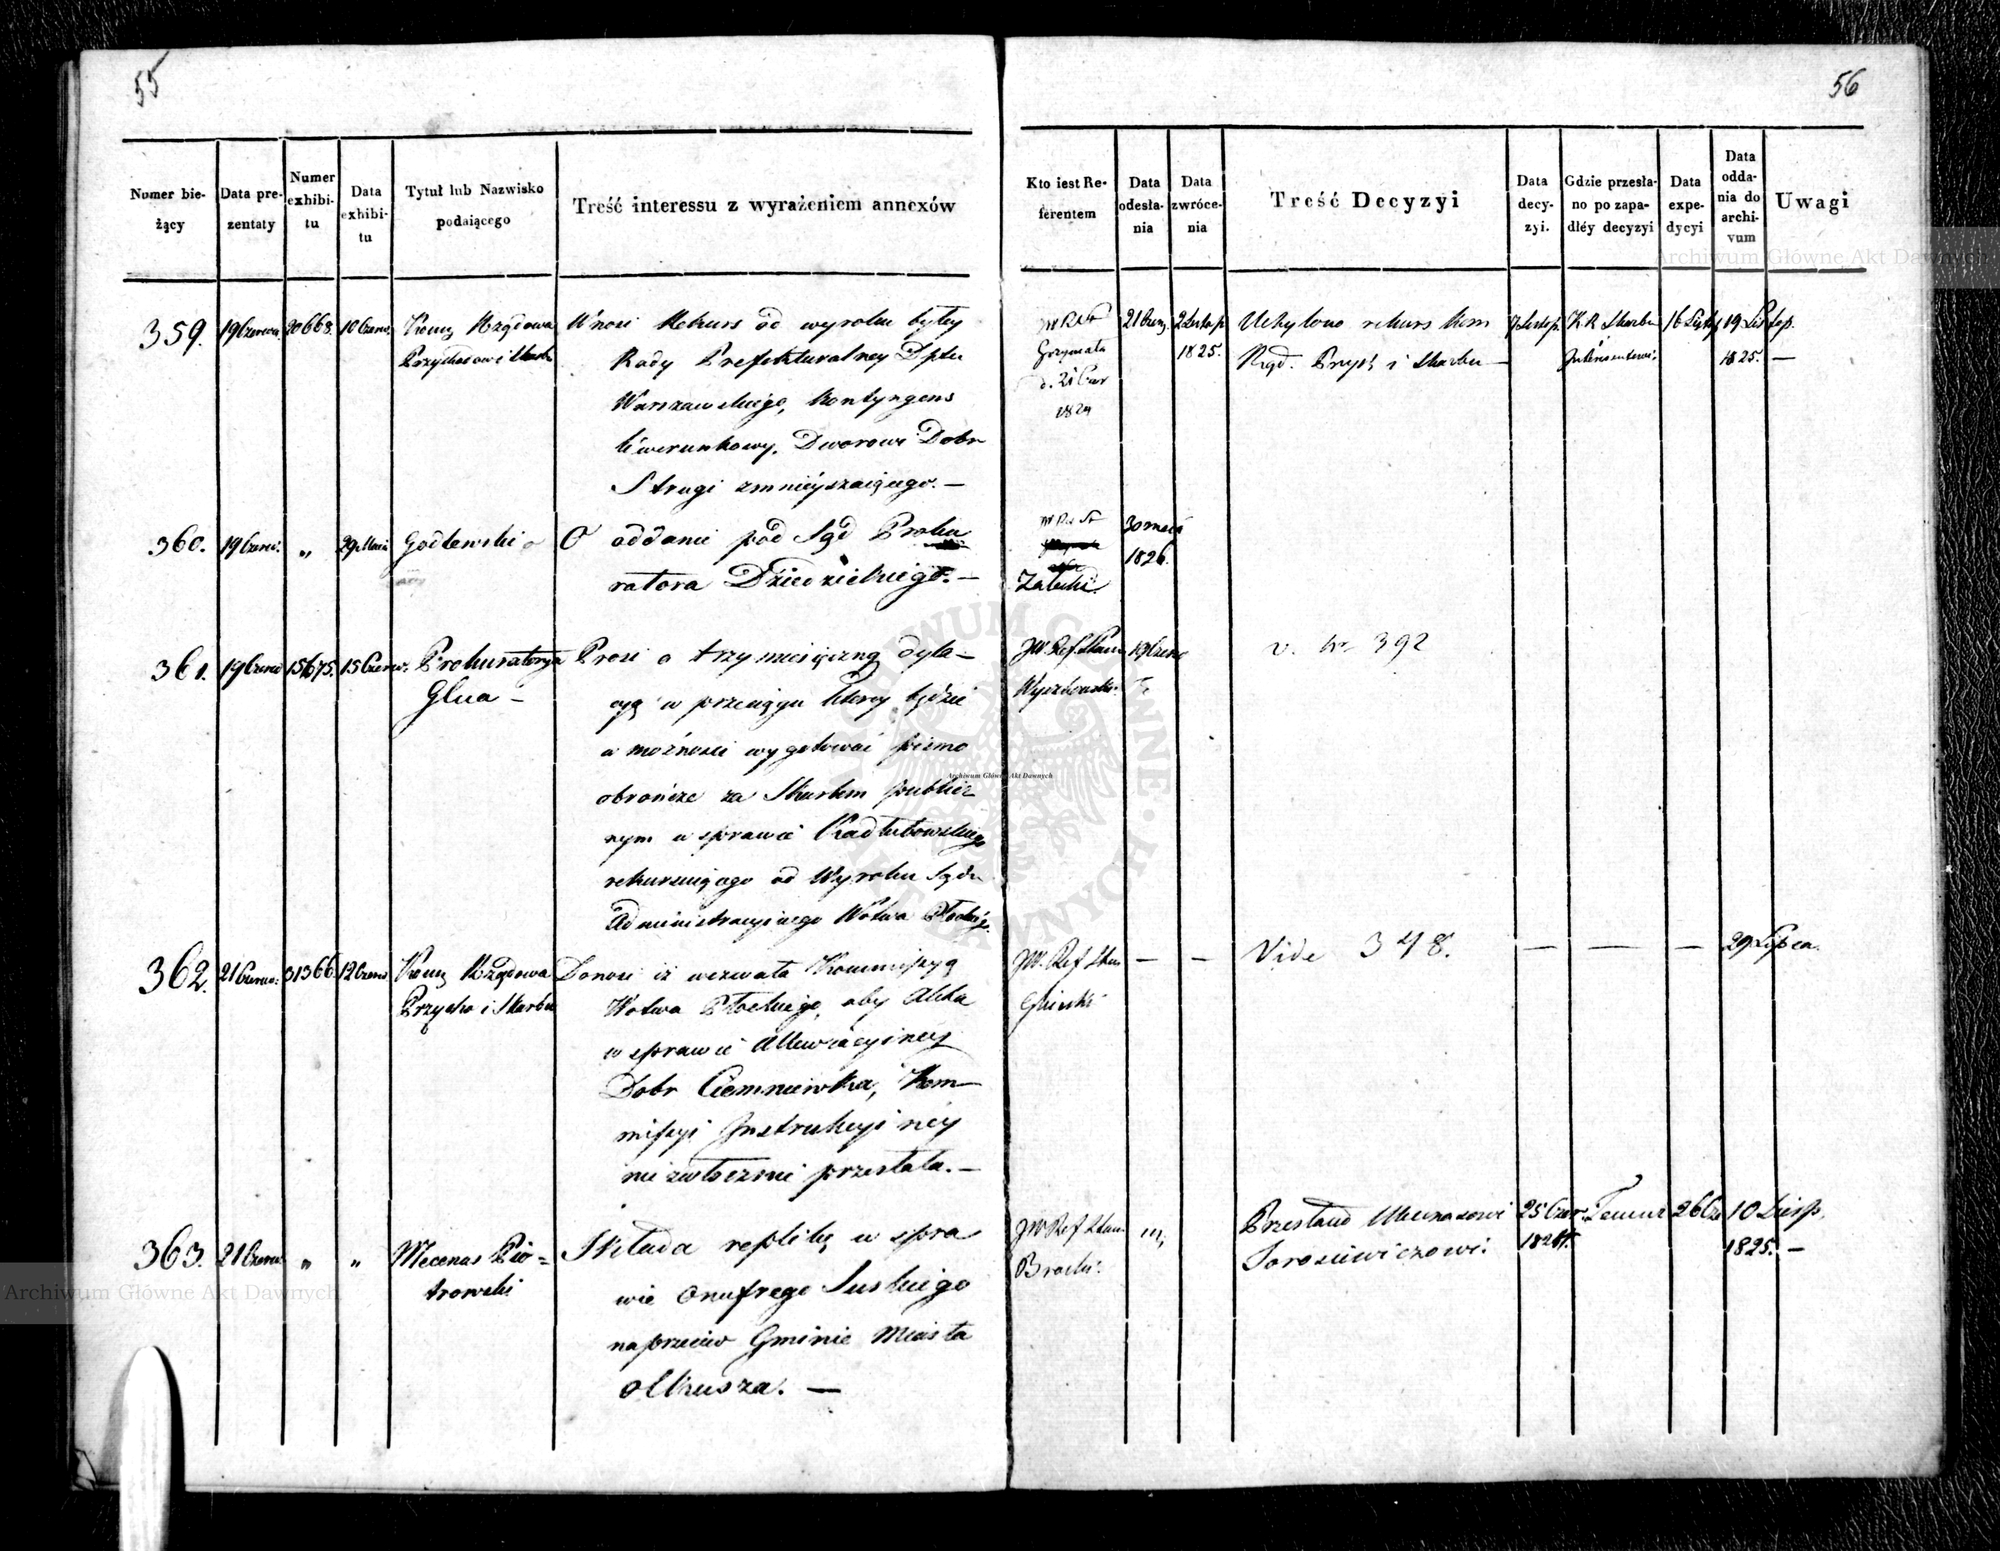 55
Numer bie-
żący
Data pre-
zentaty
Numer
exhibi-
tu
Data
exhibi-
tu
Tytuł lub Nazwisko
podaiącego
Treść interessu z wyrażeniem annexów
359. 19 Czerwca 20668. 10 Czerw. Kom͞ Rządowa
Przychodow i Skarbu
Wnosi Rekurs od wyroku byłey
Rady Prefekturalney Dptu
Warszawskiego, kontyngens
liwerunkowy, Dworowi Dobr
Strugi zmnieyszaiącego. —
360. 19 Czerw. „ 29 Maia Godlewski
O oddanie pod Sąd Proku
ratora Dziedzickiego. —
361. 19 Czerw 15675. 15 Czerw. Prokuratorya
Glna —
Prosi o trzymiesięczną dyla-
cyą w przeciągu ktorey będzie
w możnosci wygotować pismo
obrończe za Skarbem publicz
nym w sprawie Kadłubowskiego
rekuruiącego od Wyroku Sądu
Administracyinego Wdtwa Płockiego.
362. 21 Czerwc. 31366 12 Czerw. Kom͞ Rządowa
Przycho i Skarbu
Donosi iż wezwała Kommissyą
Wdtwa Płockiego, aby Akta
w sprawie Allewiacyiney
Dobr Ciemniewka, Kom-
missyi Instrukcyiney
niezwłocznie przesłała. —
363. 21 Czerw. „ „ Mecenas Pio-
trowski
Składa replikę w spra
wie Onufrego Suskiego
naprzeciw Gminie Miasta
Olkusza. —
56
Kto iest Re-
ferentem
Data
odesła-
nia
Data
zwróce-
nia
Treść Decyzyi
Data
decy-
zyi.
Gdzie przesła-
no po zapa-
dłéy decyzyi
Data
expe-
dycyi
Data
odda-
nia do
archi-
vum
Uwagi
JW Ref
Grzymała
d. 21 Czer
1824
21 Czerw. 2 Listop.
1825.
Uchylono rekurs Kom
Rząd. Przych i Skarbu —
7 Listop. K R Skarbu
16 Listop 19 Listop.
1825. —
JW Ref St
Załuski.
30 maia
1826.
JW Ref Stanu
Wyczechowski.
19 Czerw
v. Nr 392
JW. Ref Stan
Gliński
— — Vide 348. — — — 29 Lipca.
JW Ref Stanu
Brocki.
Przesłano Mecenasowi
Torosiewiczowi.
25 Czer.
1824.
Temuż 26 Cze 10 Sierp.
1825. —
Archiwum Główne Akt Dawnych
Archiwum Główne Akt Dawnych
Archiwum Główne Akt Dawnych
ARCHIWUM GŁÓWNE AKT DAWNYCH